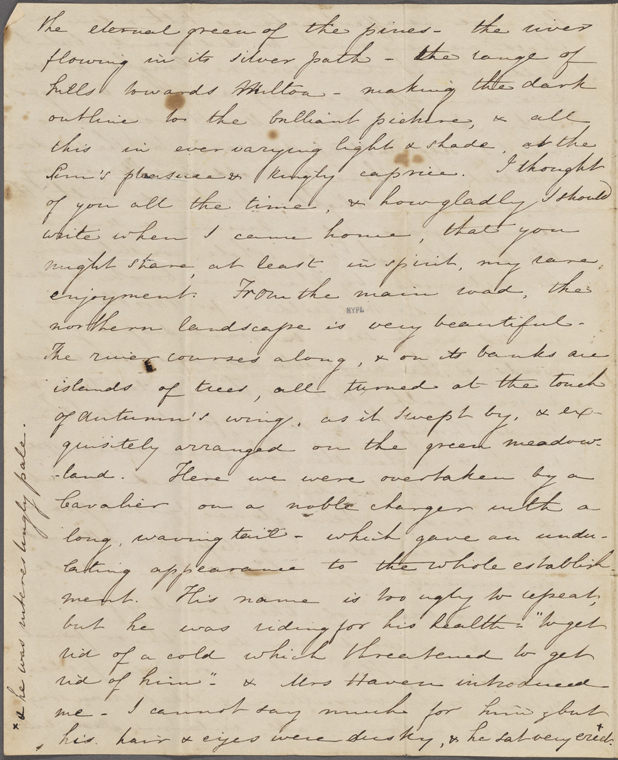 The eternal green of the pines - the river
flowing in its silver path - the range of
hills towards Milton - making the dark
outline to the brilliant picture, & all
this in ever varying light & shade, at the
Sun's pleasure & kingly caprice. I thought
of you all the time, & how gladly I should
write when I came home, that you
might share, at least in spirit, my rare
enjoyment. From the main road, the
northern landscape is very beautiful -
The river courses along, & on its banks are
islands of trees, all turned at the touch
of Autumn's wing, as it swept by, & ex-
quisitely arranged on the green meadow-
-land. Here we were overtaken by a
Cavalier on a noble charger with a
long, waving tail - which gave an undu-
lating appearance to the whole establish-
ment. His name is too ugly to repeat,
but he was riding for his health - "to get
rid of a cold which threatened to get
rid of him" - & Mrs Haven introduced
me - I cannot say much for him, but
his hair & eyes were dusky, & he sat very erect. x
x & he was interestingly pale.
NYPL